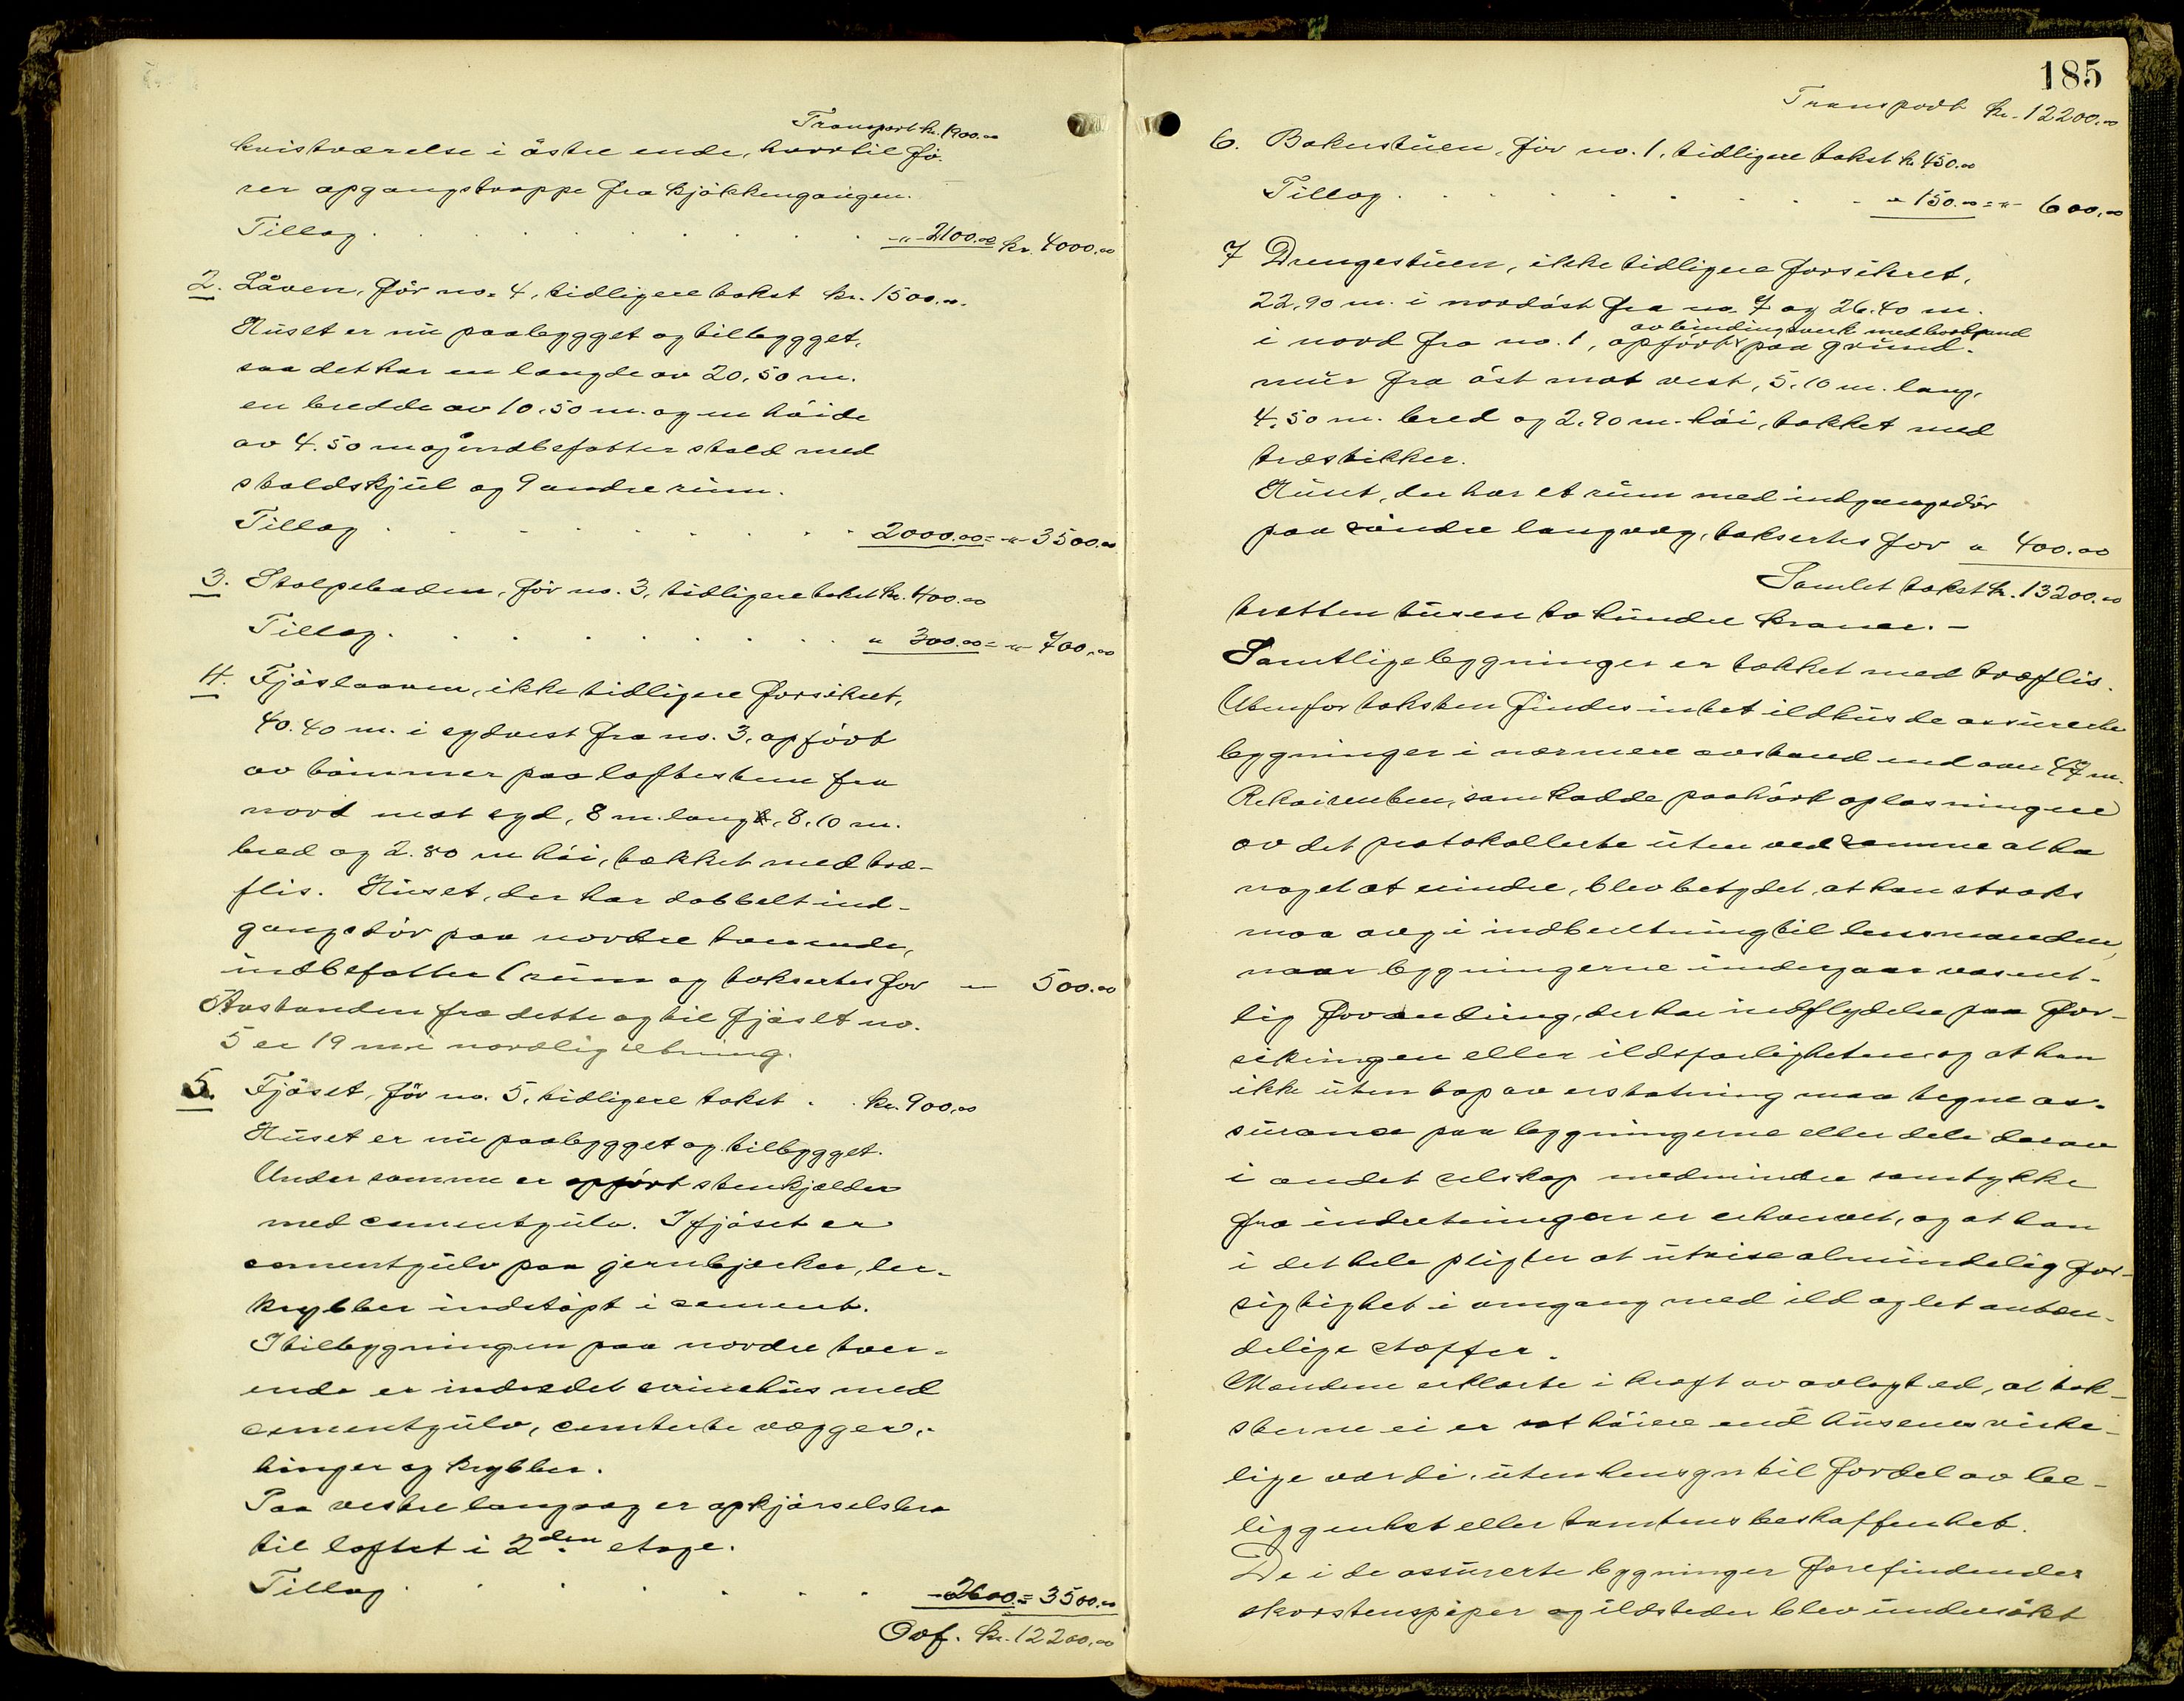 Transport kr. 1900.00
kvistværelse i östre ende, hvortil fö-
rer opgangstrappe fra kjökkengangen.
Tillæg . . . . . . . . -"- 2100.00 kr. 4000,00
2. Låven, för no. 4, tidligere takst kr. 1500.00
Huset er nu paabygget og tilbygget,
saa det har en længde av 20,50 m.
en bredde av 10,50 m. og en höide
av 4.50 m og indbefatter stald med
staldskjul og 9 andre rum.
Tillæg . . . . . . . 2000.00 = -"- 3500.00
3. Stolpeboden, för no. 3, tidligere takst kr. 400.00
Tillæg . . . . . . . " 300.00 = -"- 700,00
4. Fjöslaaven, ikke tidligere forsikret,
40.40 m. i sydvest fra no. 3, opfört
av tömmer paa loftesten fra
nord mot syd, 8 m. lang, 8,10 m.
bred og 2.80 m höi, tækket med træ-
flis. Huset, der har dobbelt ind-
gangsdör paa nordre tverende,
indbefatter 1 rum og takseres for " 500.00
Avstanden fra dette og til fjöset no.
5 er 19 m. i nordlig retning.
5. Fjöset, för no. 5, tidligere takst . . kr. 900,00
Huset er nu paabygget og tilbygget.
Under samme er opfört stenkjælder
med cementgulv. I fjöset er
cementgulv paa jernbjælker, ler-
krybber indstöpt i cement.
I tilbygningen paa nordre tver-
ende er indredet svinehus med
cementgulv, cementerte vægger,
binger og krybber.
Paa vestre langvæg er opkjörselsbro
til loftet i 2den etage.
Tillæg . . . . . . . - 2600.= 3500.00
Ovf. kr. 12200,00
185
Transport kr. 12200.00
6. Bakerstuen, för no. 1, tidligere takst kr. 450.00
Tillæg . . . . . . . " 150.00 = -"- 600,00
7 Drengestuen, ikke tidligere forsikret,
22,90 m. i nordöst fra no. 7 og 26.40 m.
av bindingsverk med bordpanel
i nord fra no. 1, opfört paa grund-
mur fra öst mot vest, 5,10 m. lang,
4.50 m. bred og 2.90 m. höi, tækket med
træstikker.
Huset, der har et rum med indgangsdör
paa söndre langvæg, takseres for " 400.00
Samlet takst kr. 13200.00
tretten tusen to hundre kroner. -
Samtlige bygninger er tækket med træflis.
Utenfor taksten findes intet ildhus de assurerte
bygninger i nærmere avstand end over 47 m.
Rekvirenten, som hadde paahört oplæsningen
av det protokollerte uten ved samme at ha
noget at erindre, blev betydet, at han straks
maa avgi indberetning til lensmanden,
naar bygningerne undergaar væsent-
lig forandring, der har indflydelse paa for-
sikringen eller ildsfarligheten og at han
ikke uten tap av erstatning maa tegne as-
surance paa bygningerne eller dele derav
i andet selskap medmindre samtykke
fra indretningen er erhvervet, og at han
i det hele pligter at utvise almindelig for-
sigtighet i omgang med ild og let antæn-
delige stoffer.
Mændene erklærte i kraft av avlagt ed, at tak-
sterne ei er sat höiere end husenes virke-
lige værdi, uten hensyn til fordel av be-
liggenhet eller tomtens beskaffenhet.
De i de assurerte bygninger forefindende
skorstenspiper og ildsteder blev undersökt